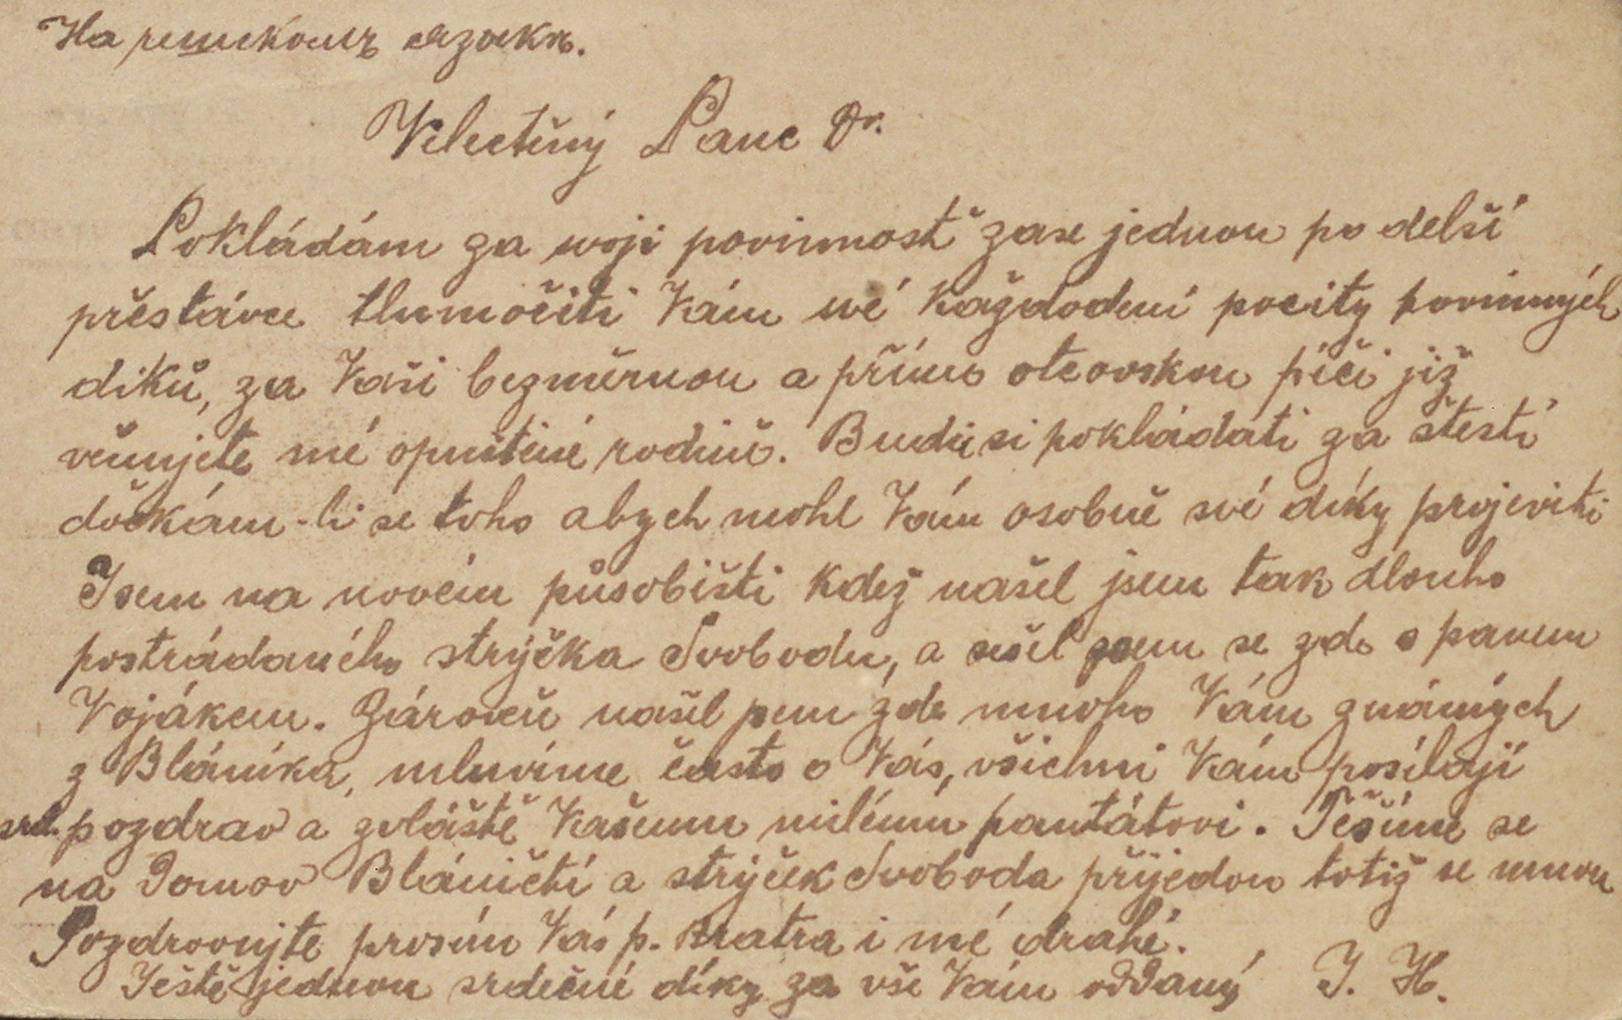 На чешскомъ языкѣ.
Velectěný Pane Dr.
Pokládám za svoji povinnost zase jednou po delší
přestávce tlumočiti Vám své každodení pocity povinných
díků, za Vaši bezměrnou a přímo otcovskou péči již
věnujete mé opuštěné rodině. Budu si pokládati za štěstí
dočkám-li se toho abych mohl Vám osobně své díky projeviti
Jsem na novém působišti kdež našel jsem tak dlouho
postrádaného strýčka Svobodu, a sešel jsem se zde s panem
Vojákem. Zároveň našel jsem zde mnoho Vám známých
z Blaníka, mluvíme často o Vás, všichni Vám posílají
srd. pozdrav a zvláště Vašemu milému pantátovi. Těšíme se
na Domov Blaničtí a strýček Svoboda přijedou totiž se mnou
Pozdravujte prosím Vás p. bratra i mé drahé.
Ještě jednou srdečné díky za vše Vám oddaný J. H.